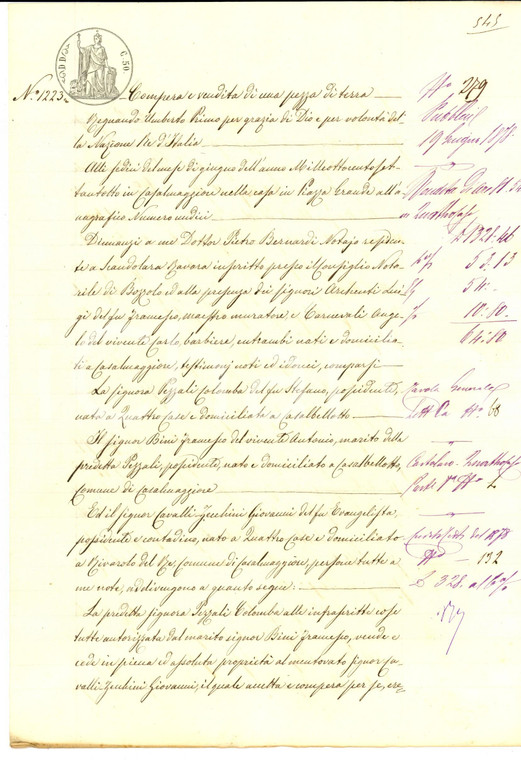 545
N.° 1223
C. 50
Compera e vendita di una pezza di terra
Regnando Umberto Primo per grazia di Dio e per volontà del-
la Nazione Re d'Italia
Alli sedici del mese di giugno dell'anno Milleottocento set-
tantotto in Casalmaggiore nella casa in Piazza Grande all'a-
nagrafico Numero undici
Dinnanzi a me Dottor Pietro Bernardi Notajo residen-
te a Scandolara Ravara inscritto presso il Consiglio Nota-
rile di Bozzolo ed alla presenza dei signori Archenti Lui-
gi del fu Francesco, maestro muratore, e Carnevali Ange-
lo del vivente Carlo, barbiere, entrambi nati e domicilia-
ti a Casalmaggiore, testimonj noti ed idonei, comparsi
La signora Pezzali Colomba del fu Stefano, possidente,
nata a Quattro Case e domiciliata a Casalbellotto
Il signor Bini Francesco del vivente Antonio, marito della
predetta Pezzali, possidente, nato e domiciliato a Casalbellotto,
Comune di Casalmaggiore
Ed il signor Cavalli-Zecchini Giovanni del fu Evangelista,
possidente e contadino, nato a Quattro Case e domiciliato
a Rivarolo del Re, Comune di Casalmaggiore, persone tutte a
me note, addivengono a quanto segue:
La predetta signora Pezzali Colomba alle infrascritte cose
tutte autorizzata dal marito signor Bini Francesco, vende e
cede in piena ed assoluta proprietà al mentovato signor Ca-
valli-Zecchini Giovanni, il quale accetta e compera per se, ere-
N° 279
19 Giugno 1878
Vendita
in Quattrocase
£ 1321:44
53.13
10:80
64:80
Tavola Generale
N° 68
Quattrocase
N° 2
1878
N° — 132
£ 328.